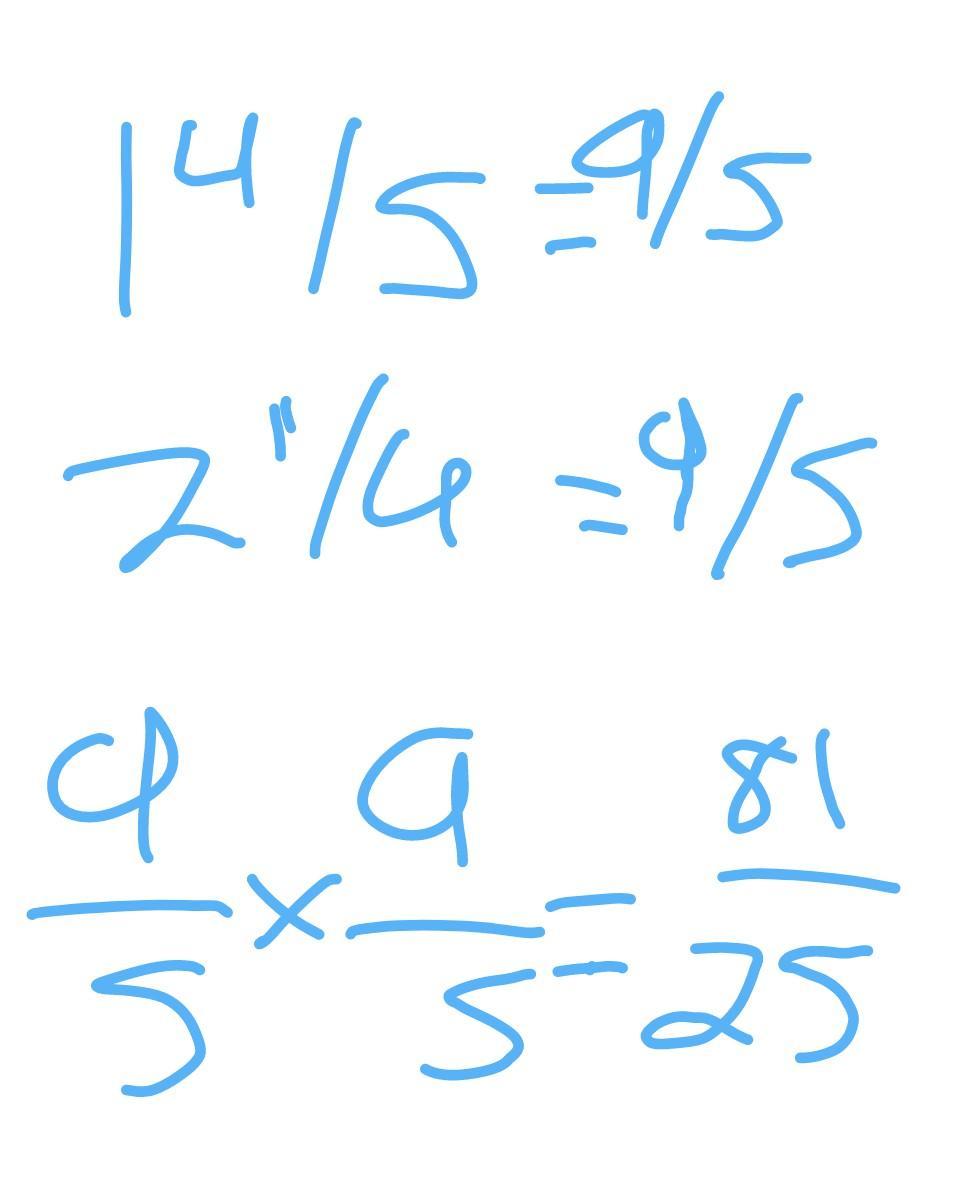 1 4/5 = 9/5
2 1/4 = 9/5
9/5 × 9/5 = 81/25